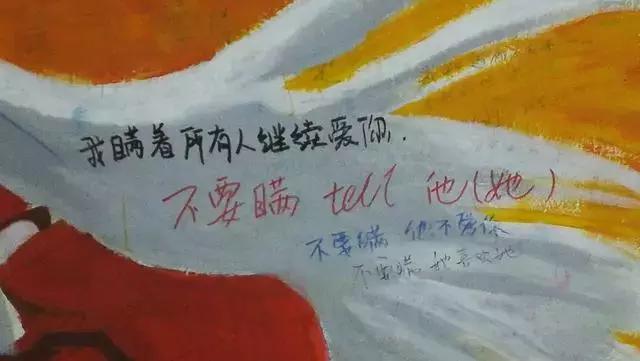 我瞒着所有人继续爱你.
不要瞒 tell 他(她)
不要瞒 他不爱你
不要瞒 她喜欢她